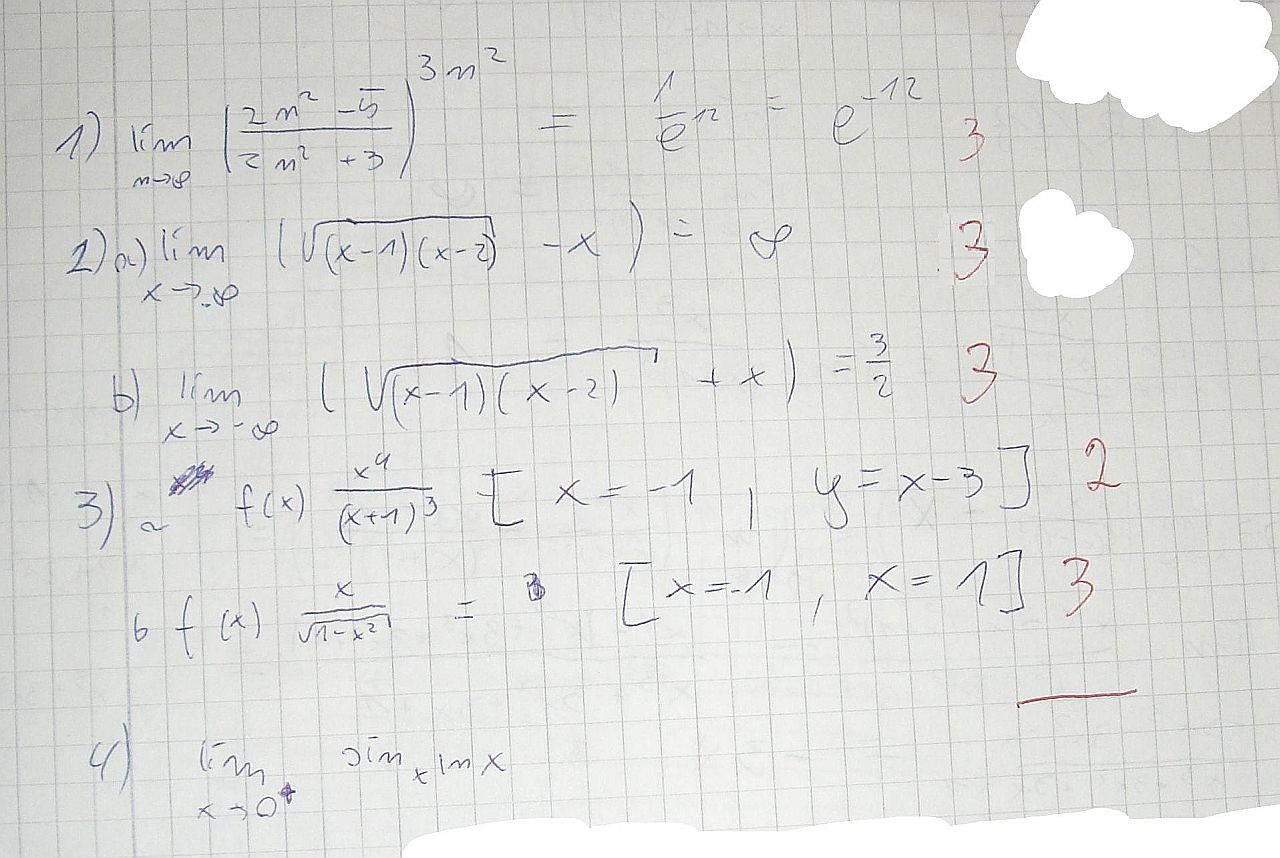 1) lim n→∞ ((2n² -5)/(2n² +3))^(3n²) = 1/e^12 = e^-12 3
2) a) lim x→-∞ (√((x-1)(x-2)) -x) = ∞ 3
b) lim x→-∞ (√((x-1)(x-2)) + x) = 3/2 3
3) a f(x) x⁴/(x+1)³ [x = -1, y = x-3] 2
b f(x) x/√(1-x²) = [x=-1, x=1] 3
4) lim x→0⁺ sin x ln x